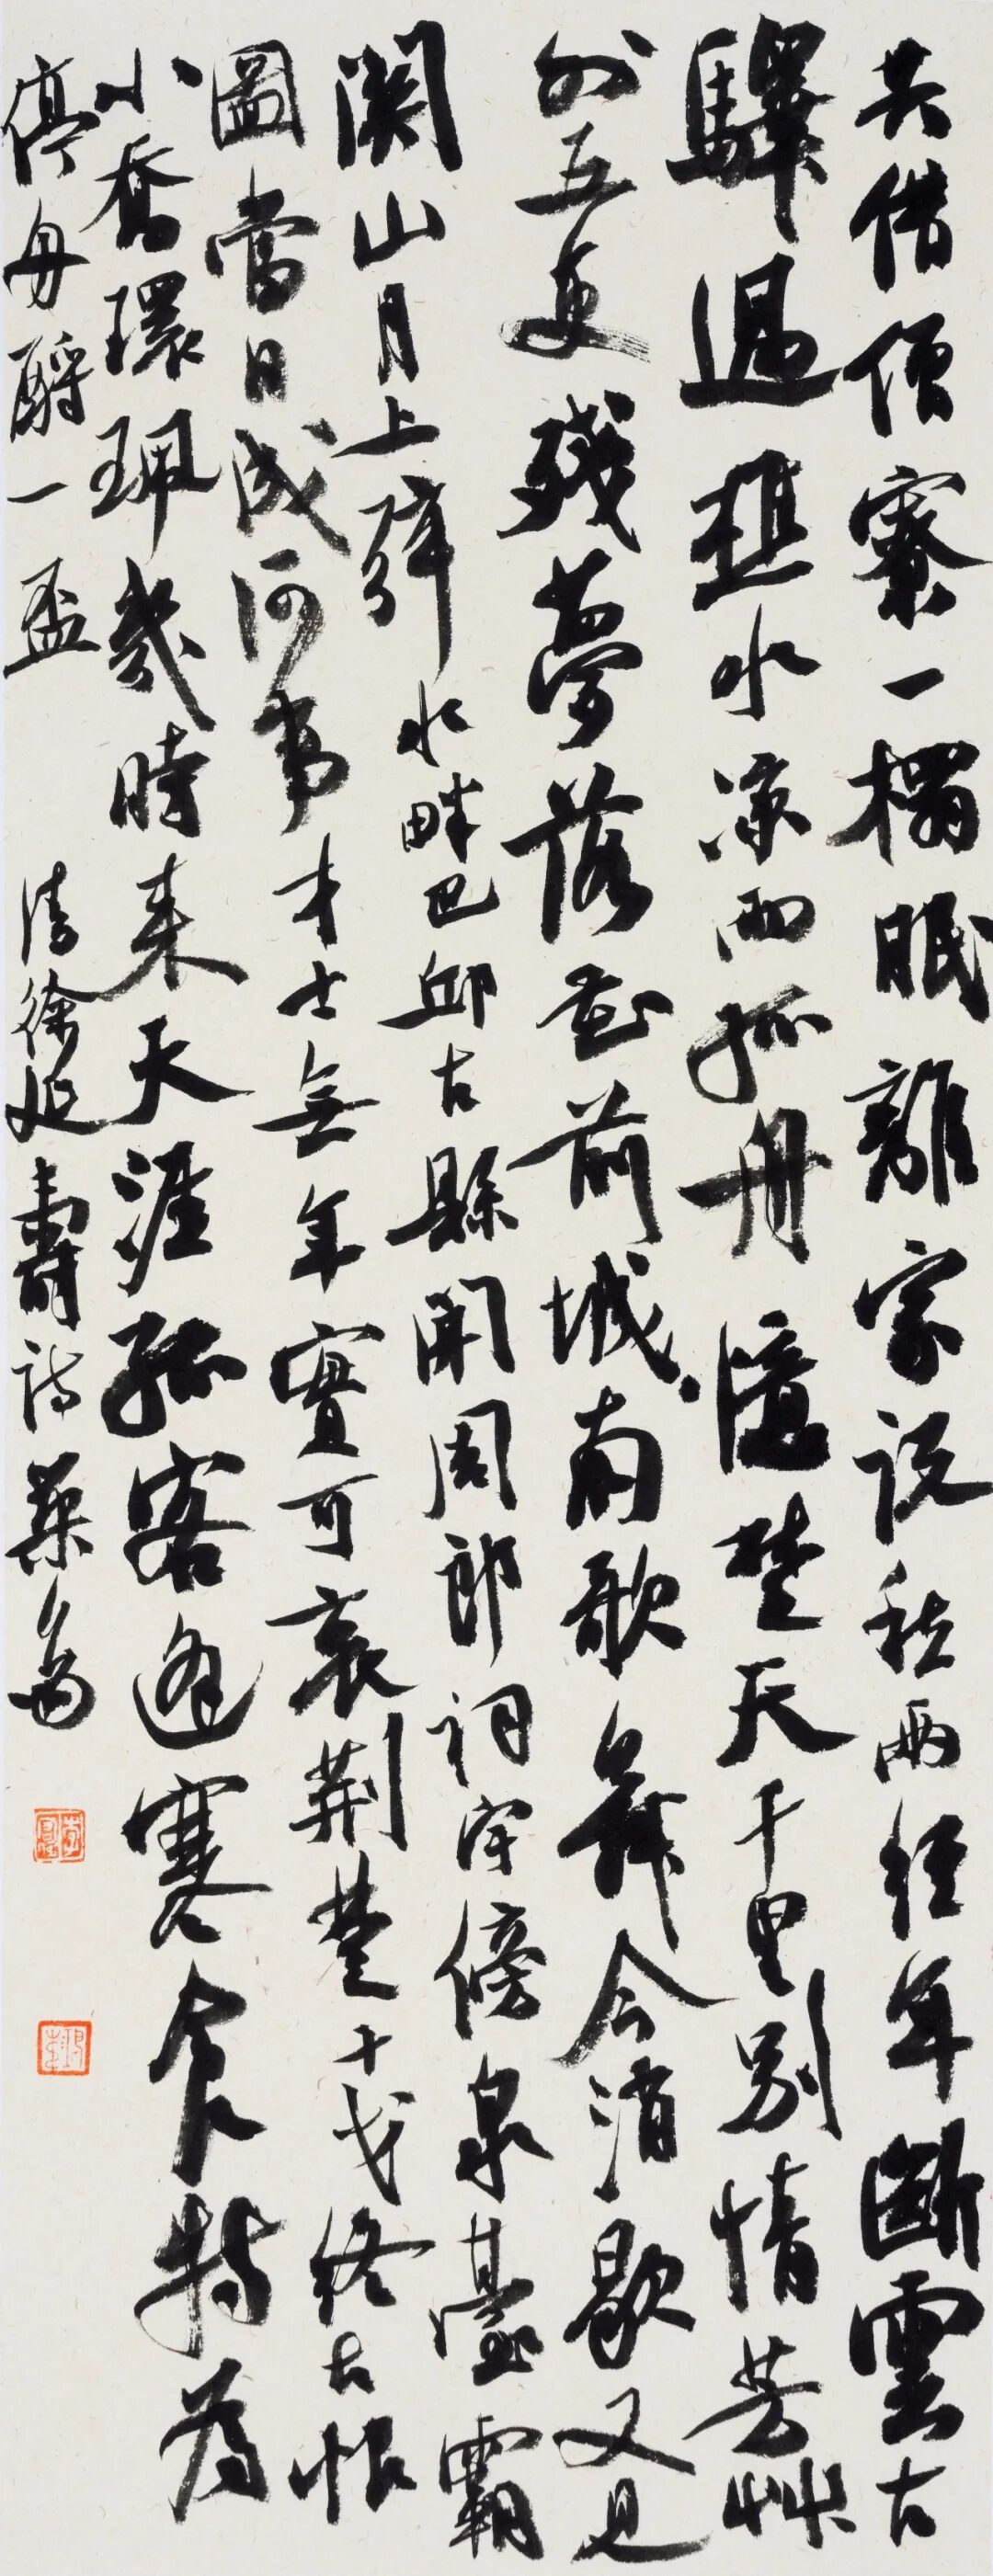 共借僧寮一榻眠離家說秋兩經年斷雲古
驛過樵水涼雨孤舟憶楚天千里別情芳艸
外五更殘夢落花前城南歌舞今消歇又見
關山月上弦水畔巴邱古縣開周郎祠宇傍泉臺霸
圖當日成何事才士無年實可哀荊楚十戈終古恨
小喬環珮幾時來天涯孤客逢寒食特為
停舟酹一盃 清徐延壽詩